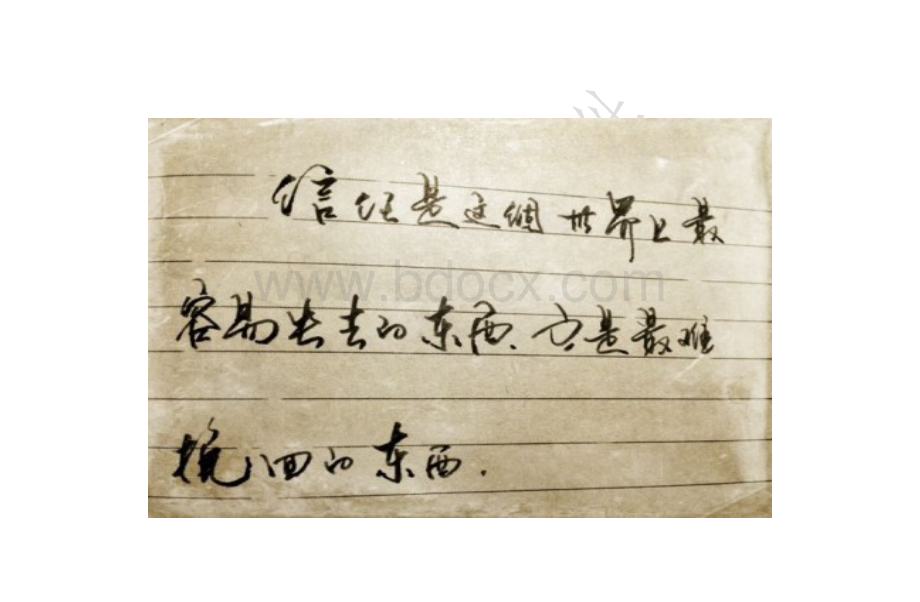 信任是这個世界上最
www.bdocx.com
容易失去的东西.也是最难
挽回的东西.